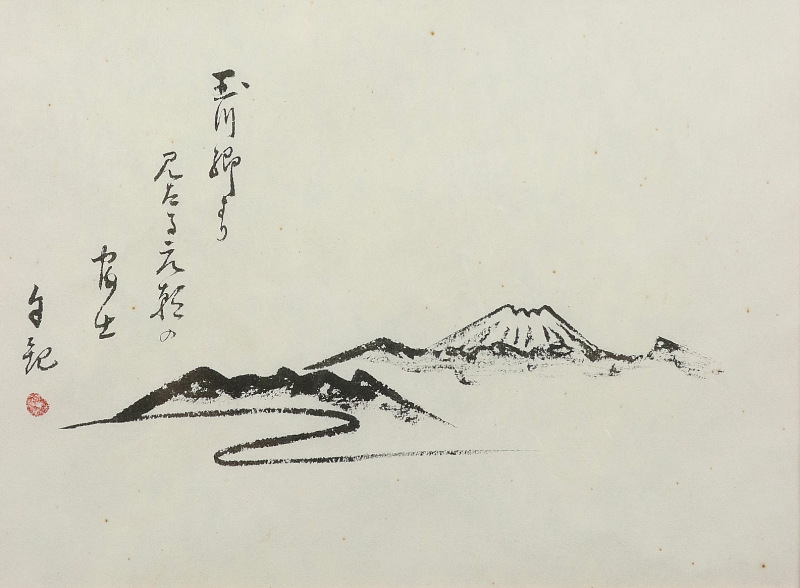 玉川郷より
見たる元朝の
富士
自記